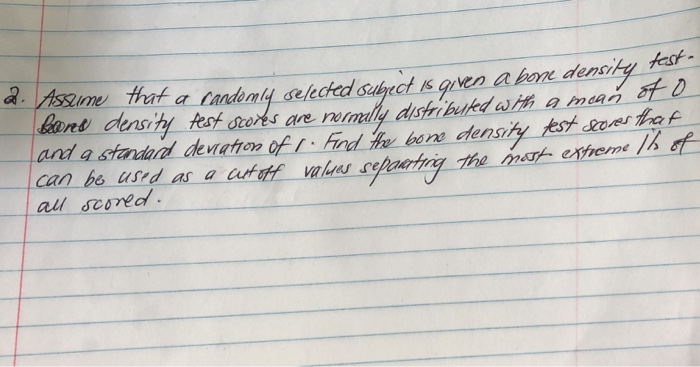 2. Assume that a randomly selected subject is given a bone density test.
Bone density test scores are normally distributed with a mean of 0
and a standard deviation of 1. Find the bone density test scores that
can be used as a cutoff values separating the most extreme 1% of
all scored.